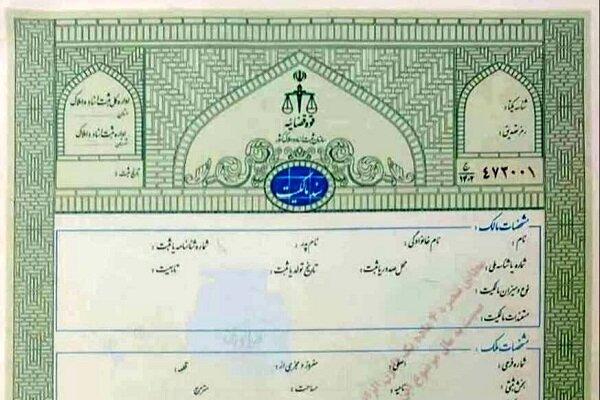 قوه قضائیه
سازمان ثبت اسناد و املاک کشور
اداره کل ثبت اسناد و املاک
استان:
اداره ثبت اسناد و املاک
شهرستان:
تاریخ ثبت:
شناسه یکتا:
رمز تصدیق:
۴۷۲۰۰۱
سند مالکیت
مشخصات مالک:
نام: نام خانوادگی: نام پدر: شماره شناسنامه یا ثبت:
شماره یا شناسه ملی: محل صدور یا ثبت: تاریخ تولد یا ثبت: تابعیت:
نوع و میزان مالکیت:
مستندات مالکیت:
مشخصات ملک:
شماره فرعی: اصلی: مفروز و مجزی از: قطعه:
بخش ثبتی: ناحیه: مساحت: مترمربع